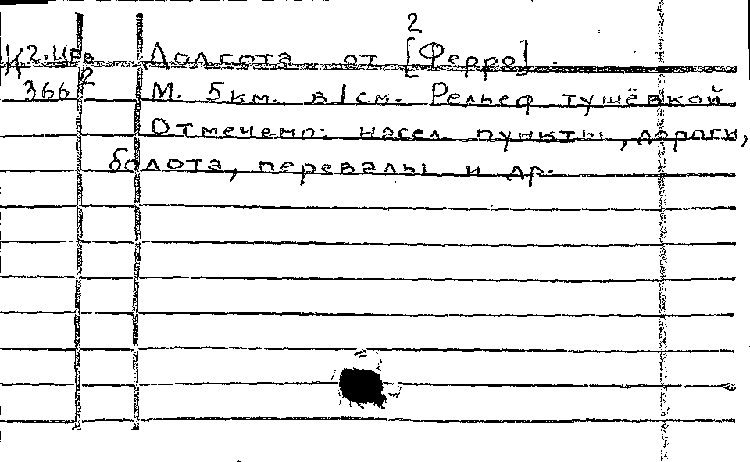 2
К 2.Цев Долгота от [Ферро].
366 2 М. 5км. в 1см. Рельеф тушёвкой
Отмечено: насел. пункты, дороги,
болота, перевалы и др.